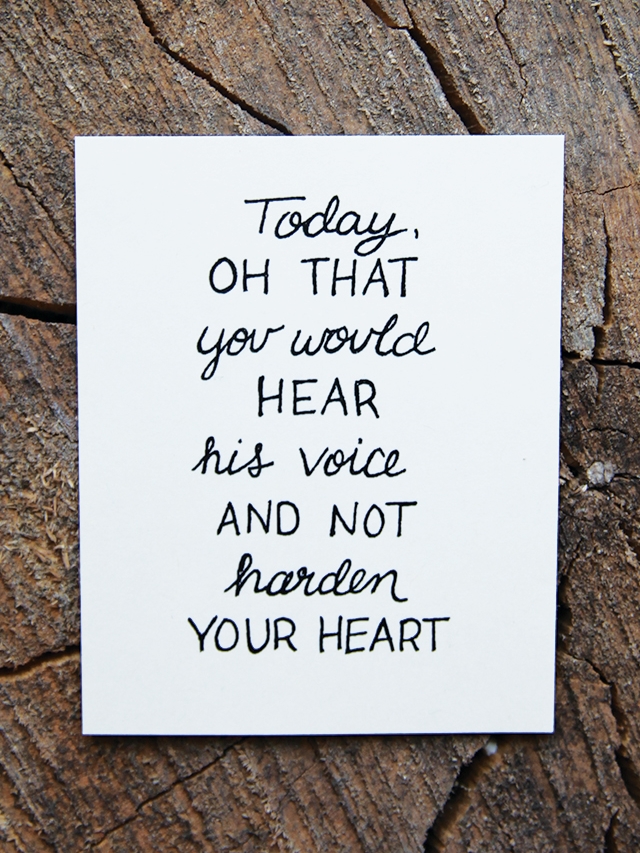 Today,
OH THAT
you would
HEAR
his voice
AND NOT
harden
YOUR HEART